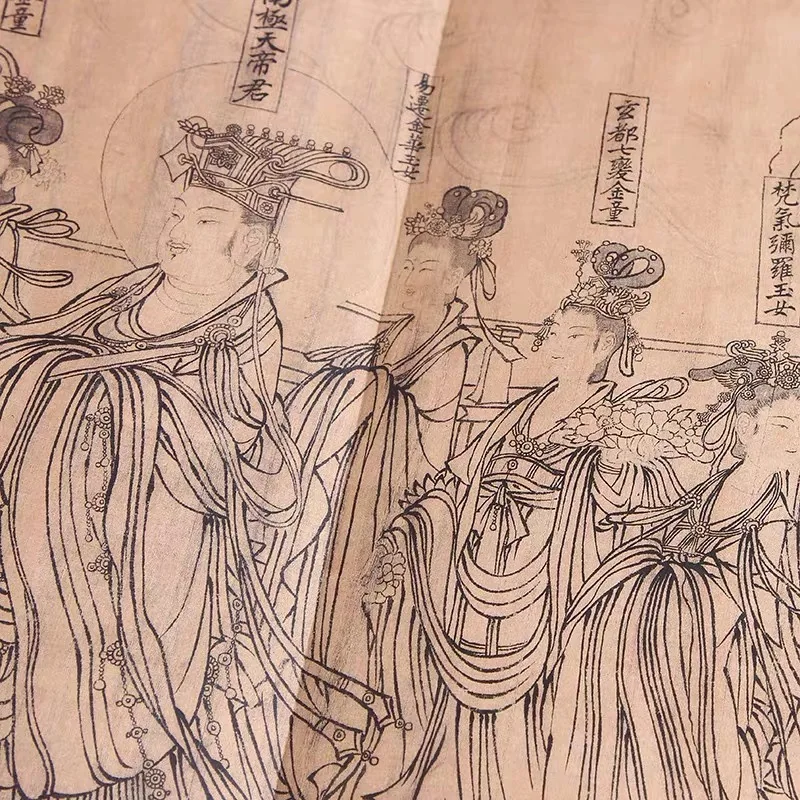 梵氣彌羅玉女
玄都七變金童
易遷金華玉女
南極天帝君
童